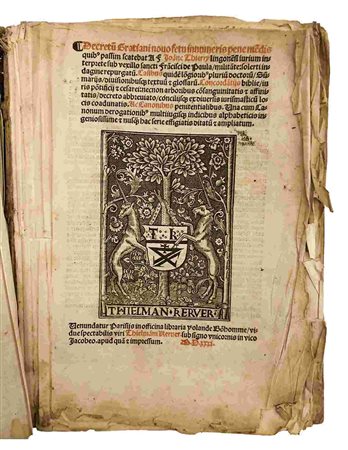 Decretũ Gratiani nouo setu innumeris pene mẽdis
quib⁹ passim scatebat A F. Joãne Thierry lingoneñ. iurium in
terprete sub vexillo sancti Frãcisci de Paula / multa et solerti in
dagine repurgatũ. Casibus quidẽ lõgiorib⁹ pluriũ doctorũ / Sũ
marijs / diuisionibusq; textuũ ⁊ glossarũ. Concordãtijs biblie / iu
ris põtificij ⁊ cesarei: necnon arboribus cõsanguinitatis ⁊ affini
tatis / decreto abbreuiato / concilijsq; ex diuersis iurismasticũ lo
cis coadunatis. Ac Canonibus penitentialibus. Una cum Ca
nonum derogationib⁹ multiiugisq; indicibus alphabeticis in
geniosissime ⁊ nusq̃ hac serie effigiatis ditatũ ⁊ ampliatum.
T K
THIELMAN · KERVER
Uenundatur Parisijs in officina libraria Yolande Bõhomme / vi
due spectabilis viri Thielmãni Kerver sub signo vnicornis in vico
Jacobeo. apud quã et impressum.